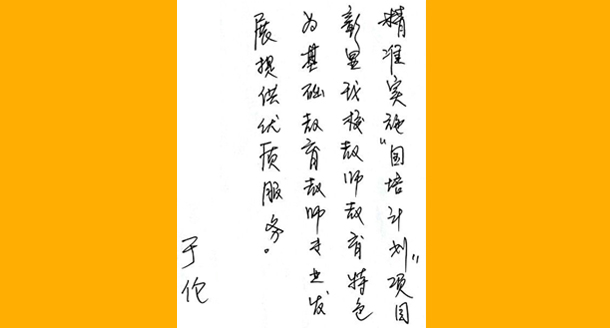 精准实施“国培计划”项目
彰显我校教师教育特色
为基础教育教师专业发
展提供优质服务。
于伦